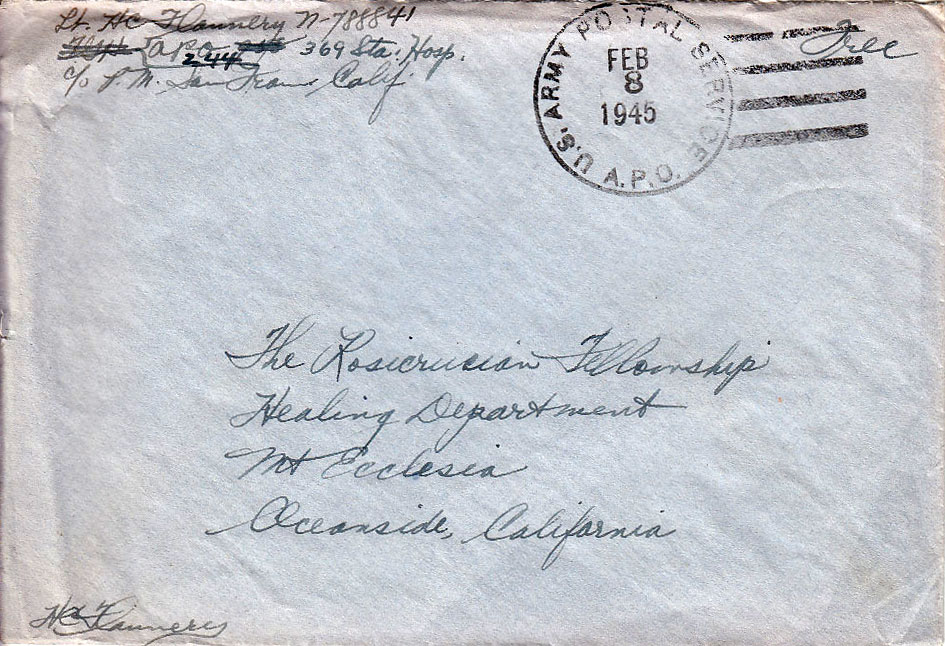 Lt. HC Flannery N-788841
A.P.O. 244 369 Sta. Hosp.
c/o P.M. San Fran, Calif
U.S. ARMY POSTAL SERVICE
FEB
8
1945
A.P.O.
Free
The Rosicrucian Fellowship
Healing Department
Mt Ecclesia
Oceanside, California
HC Flannery